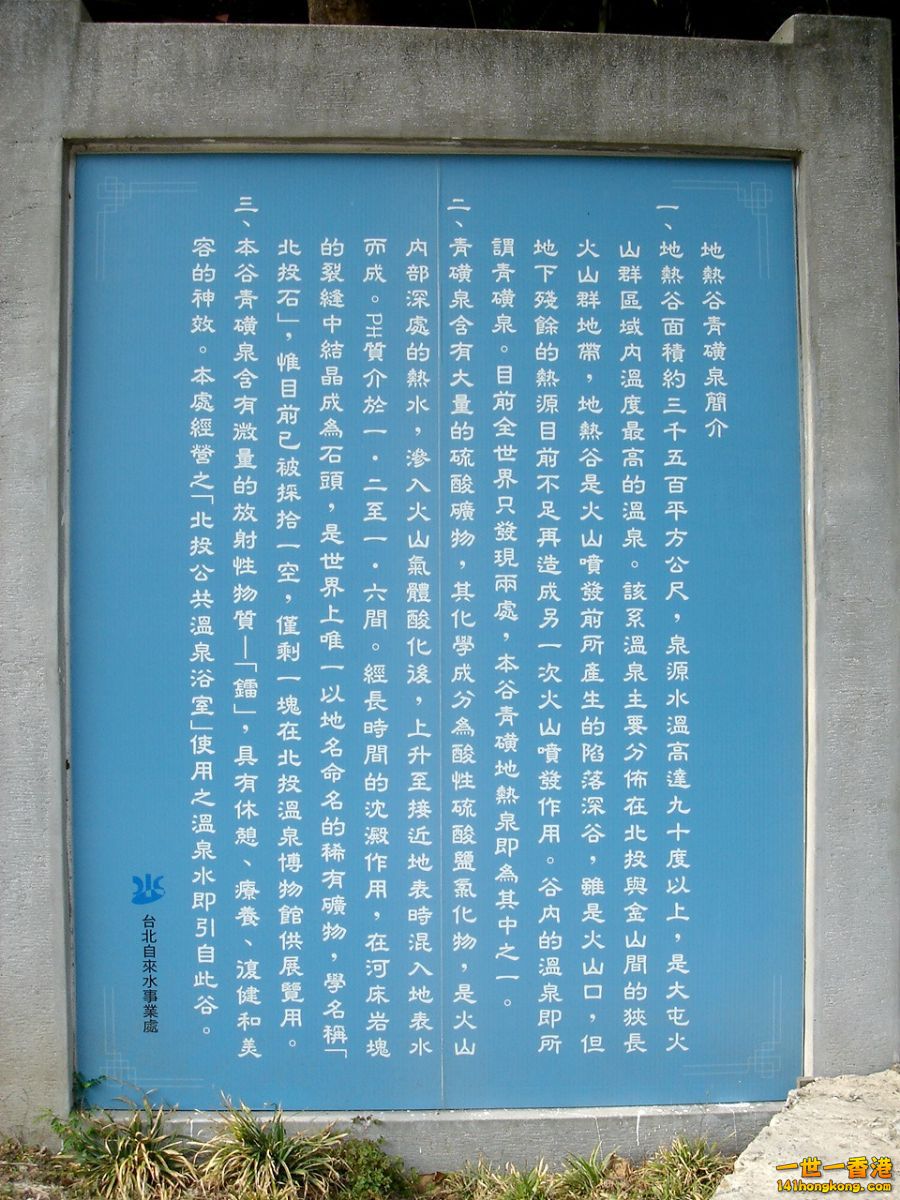 地熱谷青磺泉簡介
一、地熱谷面積約三千五百平方公尺，泉源水溫高達九十度以上，是大屯火
山群區域內溫度最高的溫泉。該系溫泉主要分佈在北投與金山間的狹長
火山群地帶，地熱谷是火山噴發前所產生的陷落深谷，雖是火山口，但
地下殘餘的熱源目前不足再造成另一次火山噴發作用。谷內的溫泉即所
謂青磺泉。目前全世界只發現兩處，本谷青磺地熱泉即為其中之一。
二、青磺泉含有大量的硫酸礦物，其化學成分為酸性硫酸鹽氯化物，是火山
內部深處的熱水，滲入火山氣體酸化後，上升至接近地表時混入地表水
而成。PH質介於一．二至一．六間。經長時間的沈澱作用，在河床岩塊
的裂縫中結晶成為石頭，是世界上唯一以地名命名的稀有礦物，學名稱「
北投石」，惟目前已被採拾一空，僅剩一塊在北投溫泉博物館供展覽用。
三、本谷青磺泉含有微量的放射性物質—「鐳」，具有休憩、療養、復健和美
容的神效。本處經營之「北投公共溫泉浴室」使用之溫泉水即引自此谷。
台北自來水事業處
一世一香港
141hongkong.com